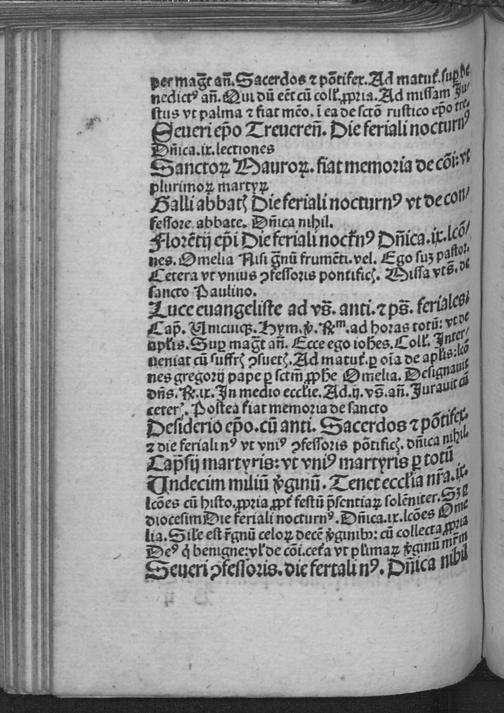 per magt̄ an̄. Sacerdos ⁊ pōtifex. Ad matut̄. sup̱ be
nedictꝰ an̄. Qui dū eēt cū coll̄. ꝓpria. Ad missam Ju
stus vt palma ⁊ fiat mēo. ī ea de sctō rustico ep̄o tre.
Seueri ep̄o Treueren̄. Die feriali nocturnꝰ
Dn̄ica .ix. lectiones
Sanctoꝝ Mauroꝝ. fiat memoria de cōi: vt
plurimoꝝ martyꝝ
Galli abbatꝭ Die feriali nocturnꝰ vt de con/
fessore abbate. Dn̄ica nihil.
Florētij ep̄i Die feriali noct̄nꝰ Dn̄ica .ix. lcō/
nes. Omelia Nisi gn̄ū frumēti. vel. Ego suꝫ pastor.
Cetera vt vnius ꝯfessoris pontificꝭ. Missa vts̄. de
sancto Paulino.
Luce euangeliste ad vs̄. anti. ⁊ ps̄. feriales:
Cap̄. Unicuiqꝫ. Hym̄. ℣. ℟m̄. ad horas totū: vt de
apl̄is. Suꝑ magt̄ an̄. Ecce ego iohes. Coll̄. Inter/
ueniat cū suffrꝭ ꝯsuetꝭ. Ad matut̄. ꝑ oīa de apl̄is: lcō
nes gregorij pape ꝑ sctm̄ ꝓphe Omelia. Designauit
dn̄s. ℟. ix. In medio eccl̄ie. Ad .ij. vs̄. an̄. Jurauit cū
ceterꝭ. Postea fiat memoria de sancto
Desiderio ep̄o. cū anti. Sacerdos ⁊ pōtifex.
⁊ die feriali nꝰ vt vniꝰ ꝯfessoris pōtificꝭ. dn̄ica nihil.
Cap̄sij martyris: vt vniꝰ martyris ꝑ totū
Undecim miliū v̄ginū. Tenet eccl̄ia nr̄a .ix.
lcōes cū histo. ꝓpria ꝓpt̄ festū p̄sentiaꝝ solēniter. Sꝫ ꝑ
diocesim Die feriali nocturnꝰ. Dn̄ica .ix. lcōes Ome
lia. Sil̄e est r̄gnū celoꝝ decē v̄ginibꝰ: cū collecta ꝓpria
Deꝰ q̄ benigne: vl̄ de cōi. cet̄a vt pl̄imaꝝ v̄ginū mr̄m
Seueri ꝯfessoris. die feriali nꝰ. Dn̄ica nihil